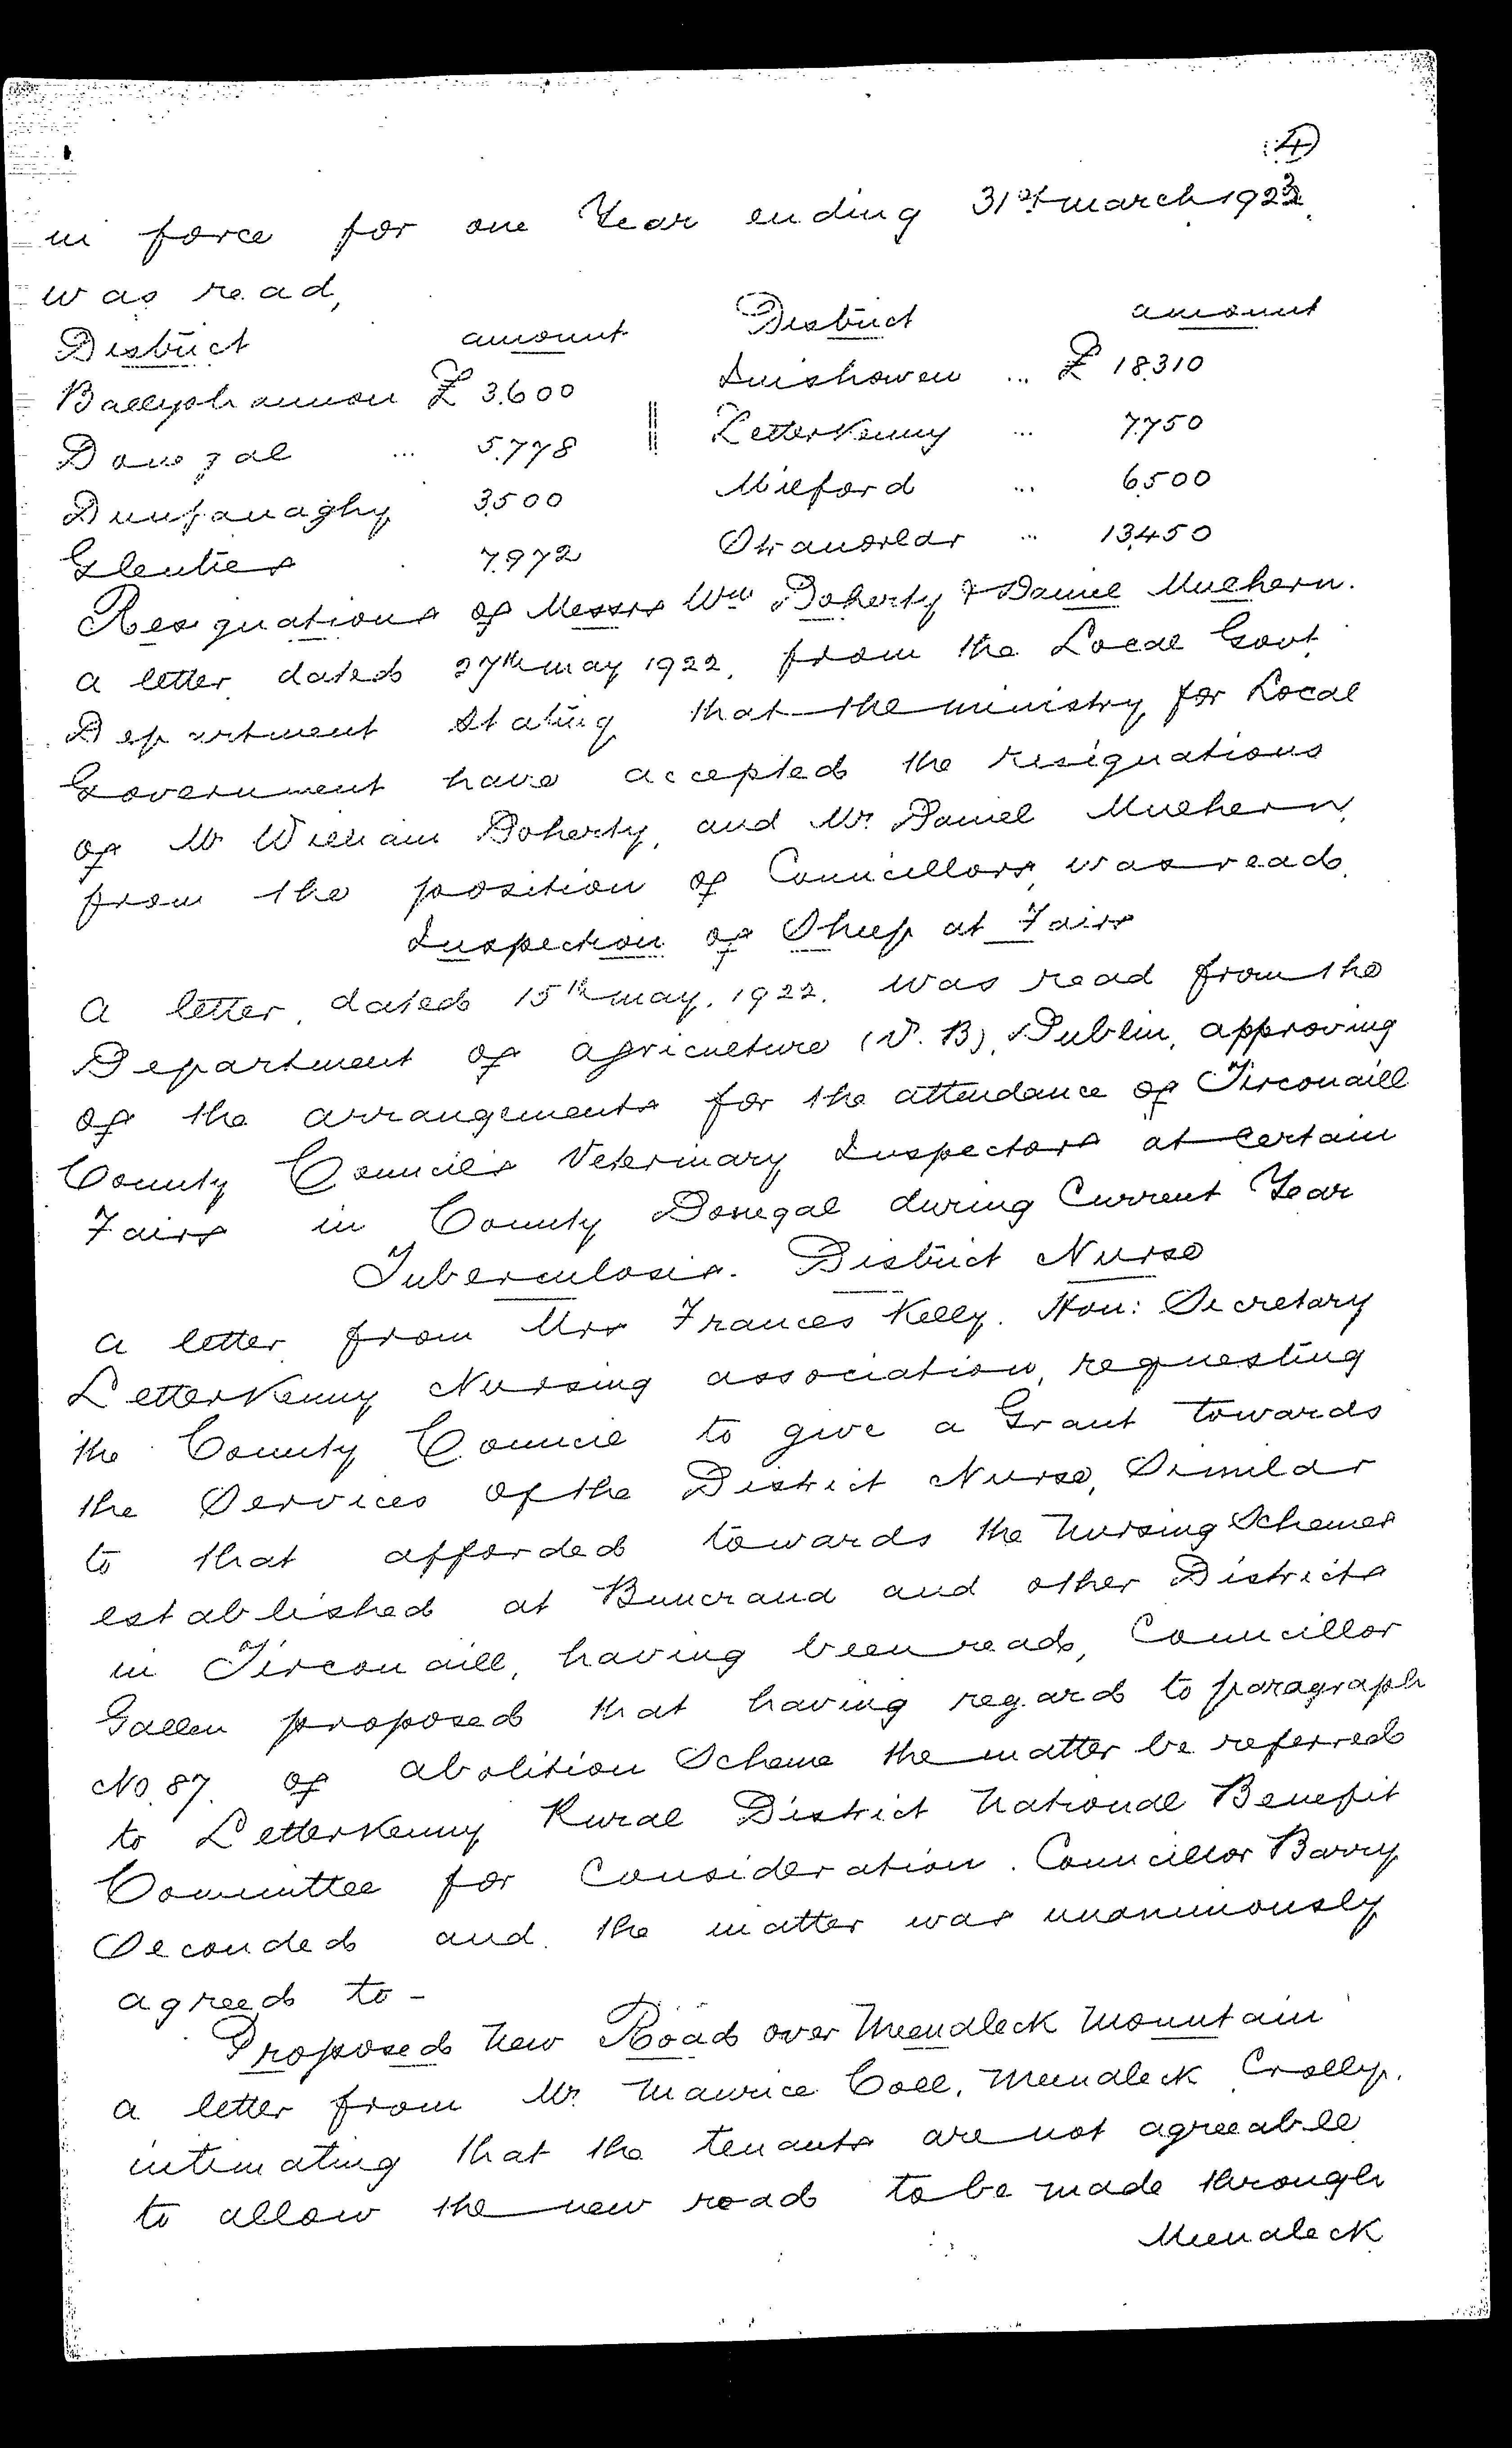 4
in force for one Year ending 31st march 1923
was read,
District amount District amount
Ballyshannon £ 3,600 Inishowen ... £ 18,310
Donegal ... 5,778 Letterkenny ... 7,750
Dunfanaghy 3,500 Milford ... 6,500
Glenties . 7,972 Stranorlar ... 13,450
Resignations of Messrs Wm Doherty & Daniel Mulhern.
a letter dated 27th may 1922, from the Local Govt
Department Stating that the ministry for Local
Government have accepted the resignations
of Mr William Doherty, and Mr. Daniel Mulhern,
from the position of Councillors, was read.
Inspection of Sheep at Fairs
a letter, dated 15th may, 1922. was read from the
Department of agriculture (V. B), Dublin, approving
of the arrangements for the attendance of Tirconaill
County Council's Veterinary Inspectors at Certain
Fairs in County Donegal during Current Year
Tuberculosis. District Nurse
a letter from Mrs Frances Kelly. Hon: Secretary
Letterkenny Nursing association, requesting
the County Council to give a Grant towards
the Services of the District Nurse, Similar
to that afforded towards the Nursing Schemes
established at Buncrana and other Districts
in Tirconaill, having been read, Councillor
Gallen proposed that having regard to paragraph
No. 87. of abolition Scheme the matter be referred
to Letterkenny Rural District National Benefit
Committee for Consideration. Councillor Barry
Seconded and the matter was unanimously
agreed to -
Proposed New Road over Meenaleck Mountain
a letter from Mr. Maurice Coll, Meenaleck Crolly,
intimating that the tenants are not agreeable
to allow the new road to be made through
Meenaleck